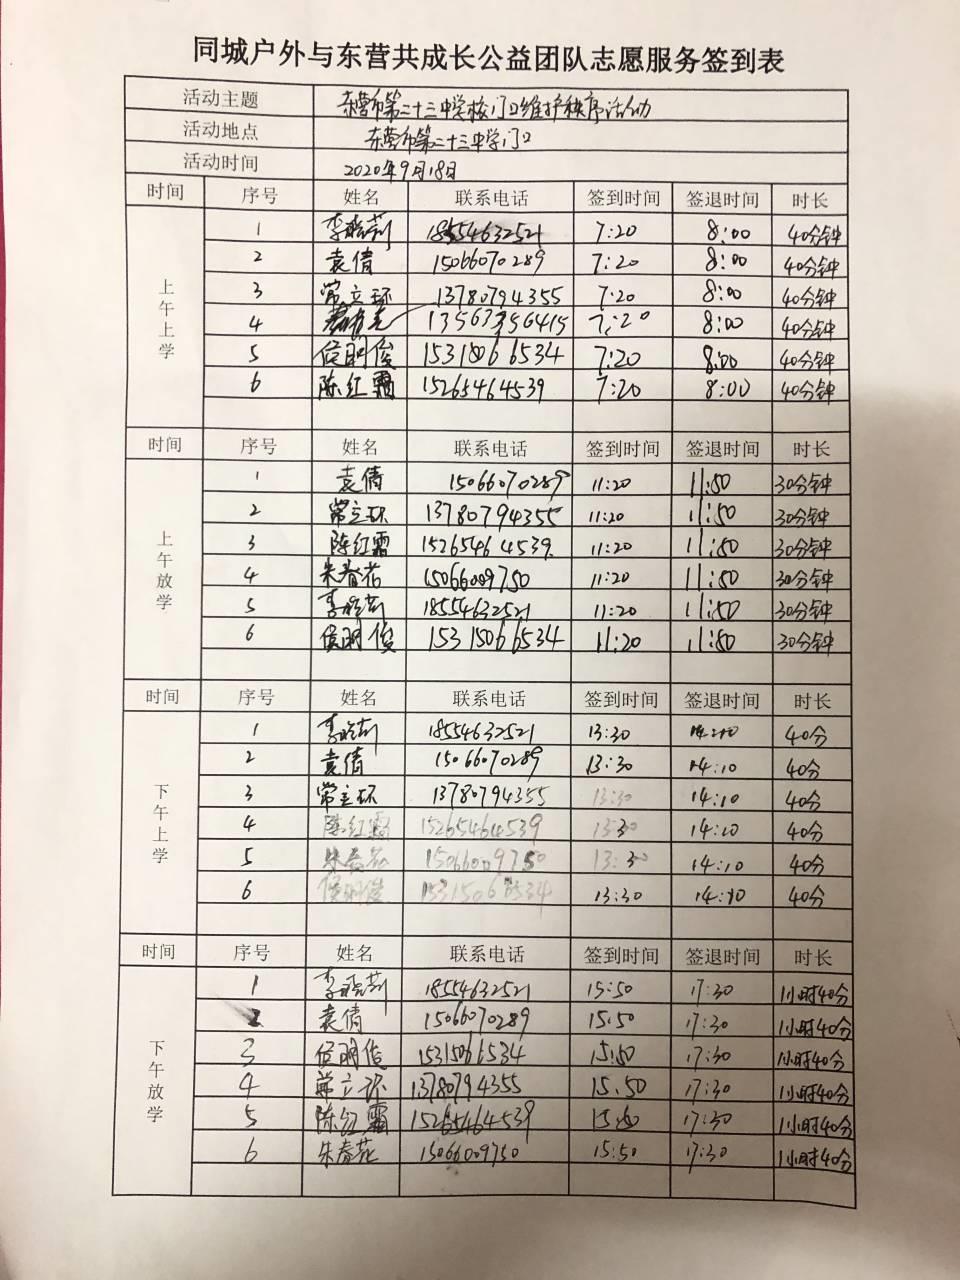 同城户外与东营共成长公益团队志愿服务签到表
活动主题 东营市第二十三中学校门口维护秩序活动
活动地点 东营市第二十三中学门口
活动时间 2020年9月18日
时间 序号 姓名 联系电话 签到时间 签退时间 时长
上午上学
1 李晓莉 18554632521 7:20 8:00 40分钟
2 袁倩 15066070289 7:20 8:00 40分钟
3 常立环 13780794355 7:20 8:00 40分钟
4 7:20 8:00 40分钟
5 侯明俊 15315066534 7:20 8:00 40分钟
6 陈红霜 15265464539 7:20 8:00 40分钟
时间 序号 姓名 联系电话 签到时间 签退时间 时长
上午放学
1 袁倩 15066070289 11:20 11:50 30分钟
2 常立环 13780794355 11:20 11:50 30分钟
3 陈红霜 15265464539 11:20 11:50 30分钟
4 朱春花 15066009750 11:20 11:50 30分钟
5 李晓莉 18554632521 11:20 11:50 30分钟
6 侯明俊 15315066534 11:20 11:50 30分钟
时间 序号 姓名 联系电话 签到时间 签退时间 时长
下午上学
1 李晓莉 18554632521 13:30 14:10 40分
2 袁倩 15066070289 13:30 14:10 40分
3 常立环 13780794355 13:30 14:10 40分
4 陈红霜 15265464539 13:30 14:10 40分
5 朱春花 15066009750 13:30 14:10 40分
6 侯明俊 15315066534 13:30 14:10 40分
时间 序号 姓名 联系电话 签到时间 签退时间 时长
下午放学
1 李晓莉 18554632521 15:50 17:30 1小时40分
2 袁倩 15066070289 15:50 17:30 1小时40分
3 侯明俊 15315066534 15:50 17:30 1小时40分
4 常立环 13780794355 15:50 17:30 1小时40分
5 陈红霜 15265464539 15:50 17:30 1小时40分
6 朱春花 15066009750 15:50 17:30 1小时40分